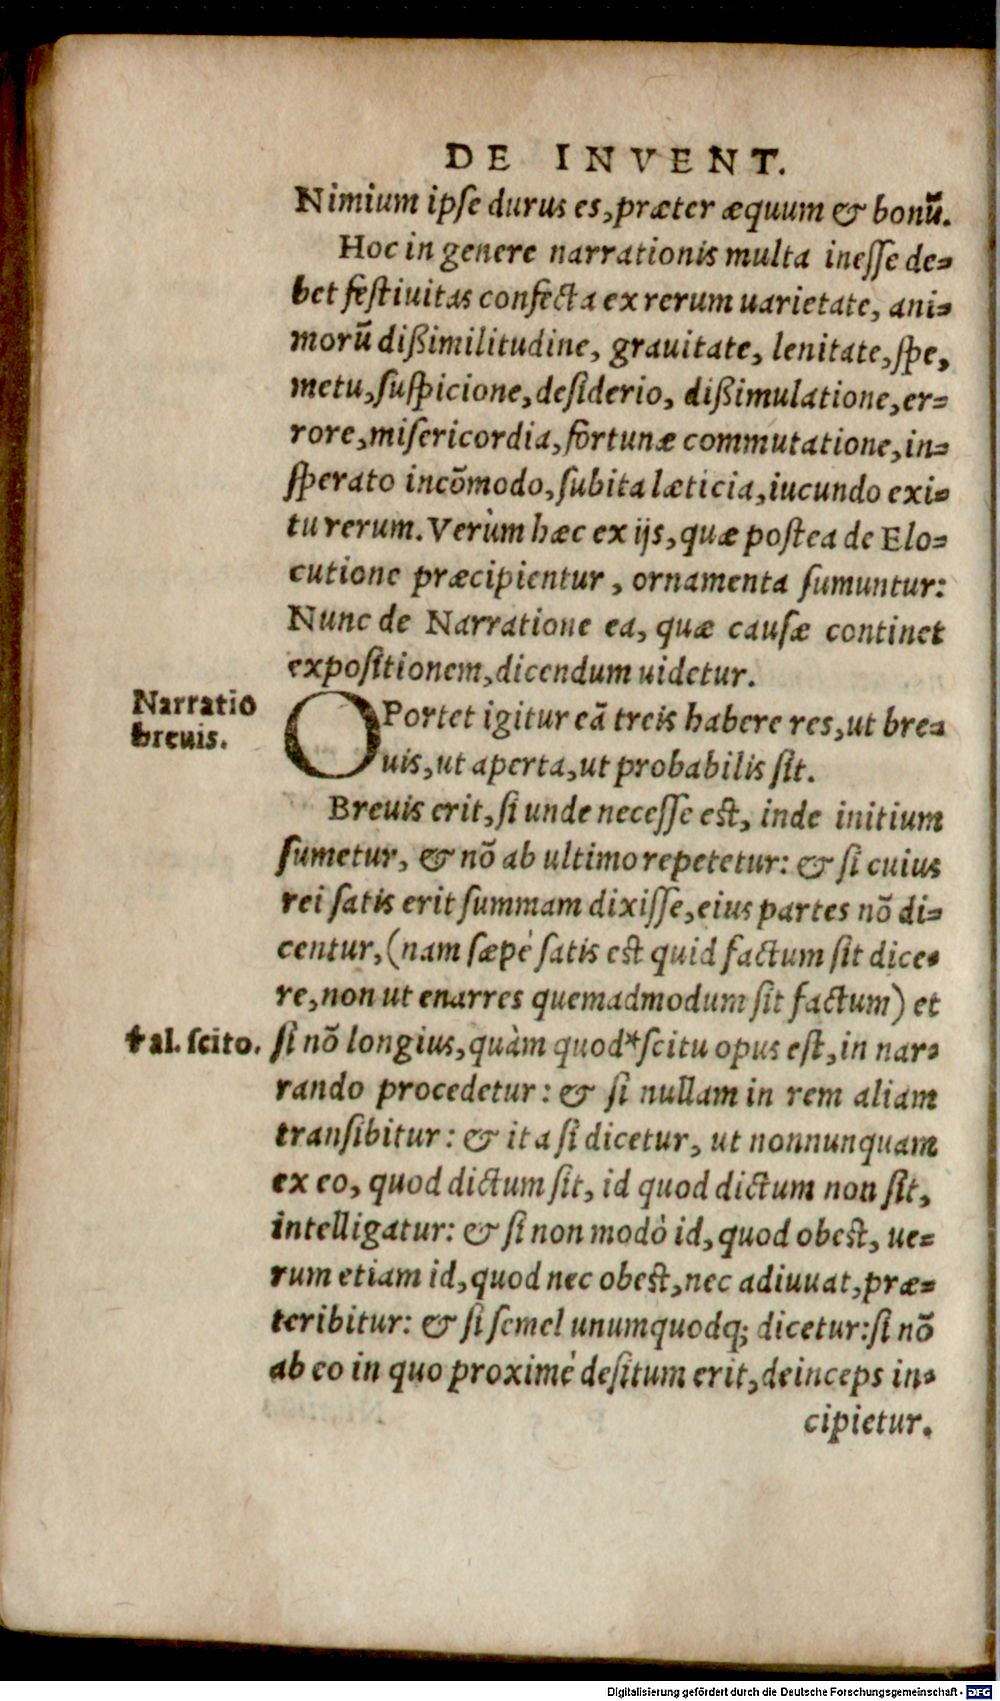 DE INVENT.
Nimium ipſe durus es, præter æquum & bonū.
Hoc in genere narrationis multa ineſſe de=
bet feſtiuitas confecta ex rerum uarietate, ani=
morū dißimilitudine, grauitate, lenitate, ſpe,
metu, ſuſpicione, deſiderio, dißimulatione, er=
rore, miſericordia, fortunæ commutatione, in=
ſperato incōmodo, ſubita læticia, iucundo exi=
tu rerum. Verùm hæc ex ijs, quæ poſtea de Elo=
cutione præcipientur, ornamenta ſumuntur:
Nunc de Narratione ea, quæ cauſæ continet
expoſitionem, dicendum uidetur.
Narratio
breuis.
OPortet igitur eā treis habere res, ut bre=
uis, ut aperta, ut probabilis ſit.
Breuis erit, ſi unde neceſſe eſt, inde initium
ſumetur, & nō ab ultimo repetetur: & ſi cuius
rei ſatis erit ſummam dixiſſe, eius partes nō di=
centur, (nam ſæpè ſatis eſt quid factum ſit dice=
re, non ut enarres quemadmodum ſit factum) et
✝al. ſcito.
ſi nō longius, quàm quod*ſcitu opus eſt, in nar=
rando procedetur: & ſi nullam in rem aliam
tranſibitur: & ita ſi dicetur, ut nonnunquam
ex eo, quod dictum ſit, id quod dictum non ſit,
intelligatur: & ſi non modò id, quod obeſt, ue=
rum etiam id, quod nec obeſt, nec adiuuat, præ=
teribitur: & ſi ſemel unumquodq; dicetur: ſi nō
ab eo in quo proximè deſitum erit, deinceps in=
cipietur.
Digitalisierung gefördert durch die Deutsche Forschungsgemeinschaft - DFG